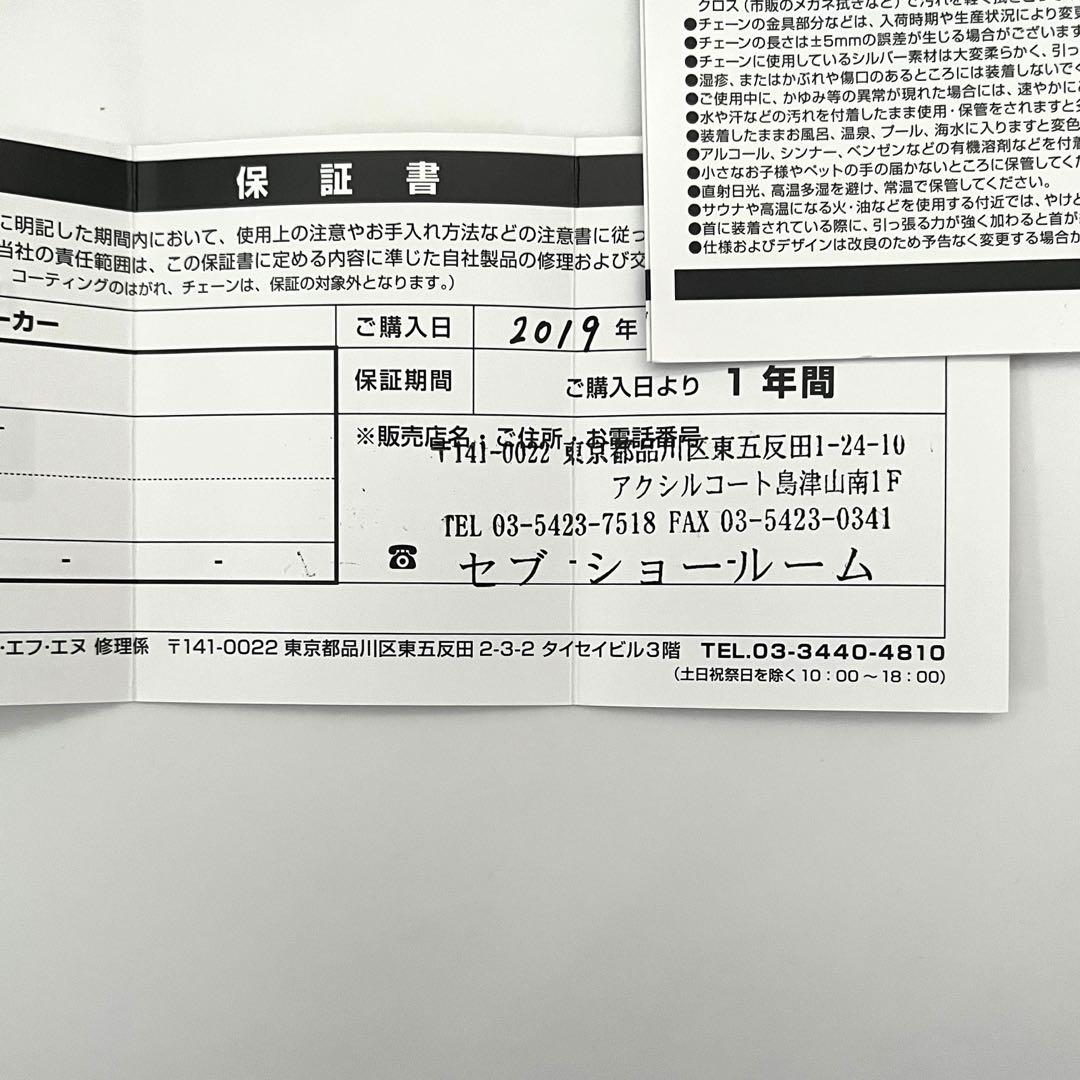 クロス(市販のメガネ拭きなど)で汚れを軽く拭き
●チェーンの金具部分などは、入荷時期や生産状況により変更
●チェーンの長さは±5mmの誤差が生じる場合がございます
●チェーンに使用しているシルバー素材は大変柔らかく、引っ
●湿疹、またはかぶれや傷口のあるところには装着しないでく
●ご使用中に、かゆみ等の異常が現れた場合には、速やかに
●水や汗などの汚れを付着したまま使用・保管をされますと
●装着したままお風呂、温泉、プール、海水に入りますと変色
●アルコール、シンナー、ベンゼンなどの有機溶剤などを付着
●小さなお子様やペットの手の届かないところに保管してくだ
●直射日光、高温多湿を避け、常温で保管してください。
●サウナや高温になる火・油などを使用する付近では、やけど
●首に装着されている際に、引っ張る力が強く加わると首が
●仕様およびデザインは改良のため予告なく変更する場合が
保証書
に明記した期間内において、使用上の注意やお手入れ方法などの注意書に従っ
当社の責任範囲は、この保証書に定める内容に準じた自社製品の修理および交
コーティングのはがれ、チェーンは、保証の対象外となります。)
ーカー
ご購入日 2019 年
保証期間 ご購入日より 1年間
※販売店名・ご住所・お電話番号
〒141-0022 東京都品川区東五反田1-24-10
アクシルコート島津山南1F
TEL 03-5423-7518 FAX 03-5423-0341
- - ☎ セブ・ショールーム
・エフ・エヌ 修理係 〒141-0022 東京都品川区東五反田 2-3-2 タイセイビル3階 TEL.03-3440-4810
(土日祝祭日を除く10:00〜18:00)